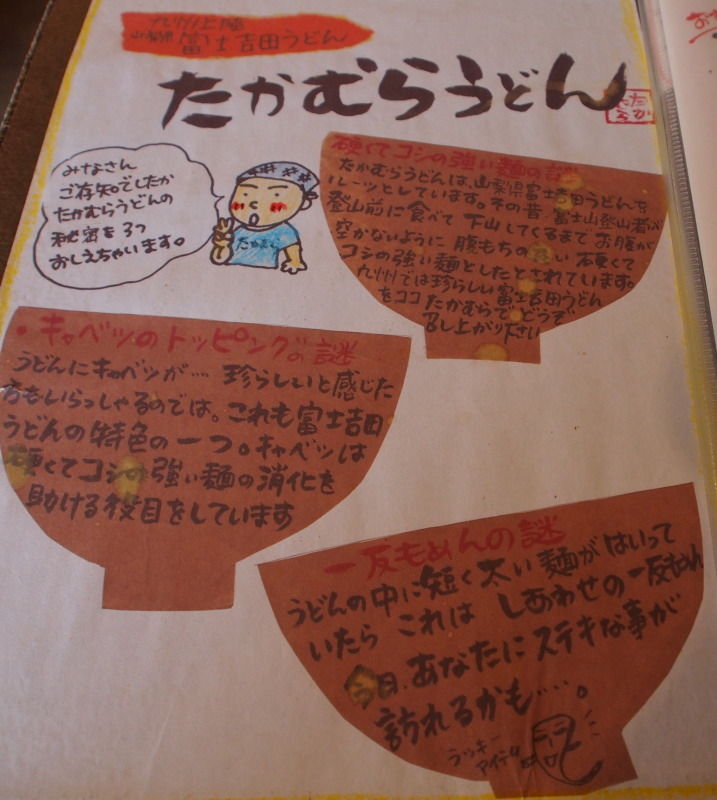 九州上陸
山梨県富士吉田うどん
たかむらうどん
たかむら
みなさん
ご存知でしたか
たかむらうどんの
秘密を3つ
おしえちゃいます。
たかむら
硬くてコシの強い麺の謎
たかむらうどんは、山梨県富士吉田うどんを
ルーツとしています。その昔、富士山登山者が
登山前に食べて下山してくるまでお腹が
空かないように腹もちの良い硬くて
コシの強い麺としたとされています。
九州では珍らしい富士吉田うどん
をココたかむらでどうぞ
召し上がり下さい
・キャベツのトッピングの謎
うどんにキャベツが…珍らしいと感じた
方もいらっしゃるのでは。これも富士吉田
うどんの特色の一つ。キャベツは
硬くてコシの強い麺の消化を
助ける役目をしています
一反もめんの謎
うどんの中に短く太い麺がはいって
いたらこれはしあわせの一反もめん
今日、あなたにステキな事が
訪れるかも……。
ラッキー
アイテム